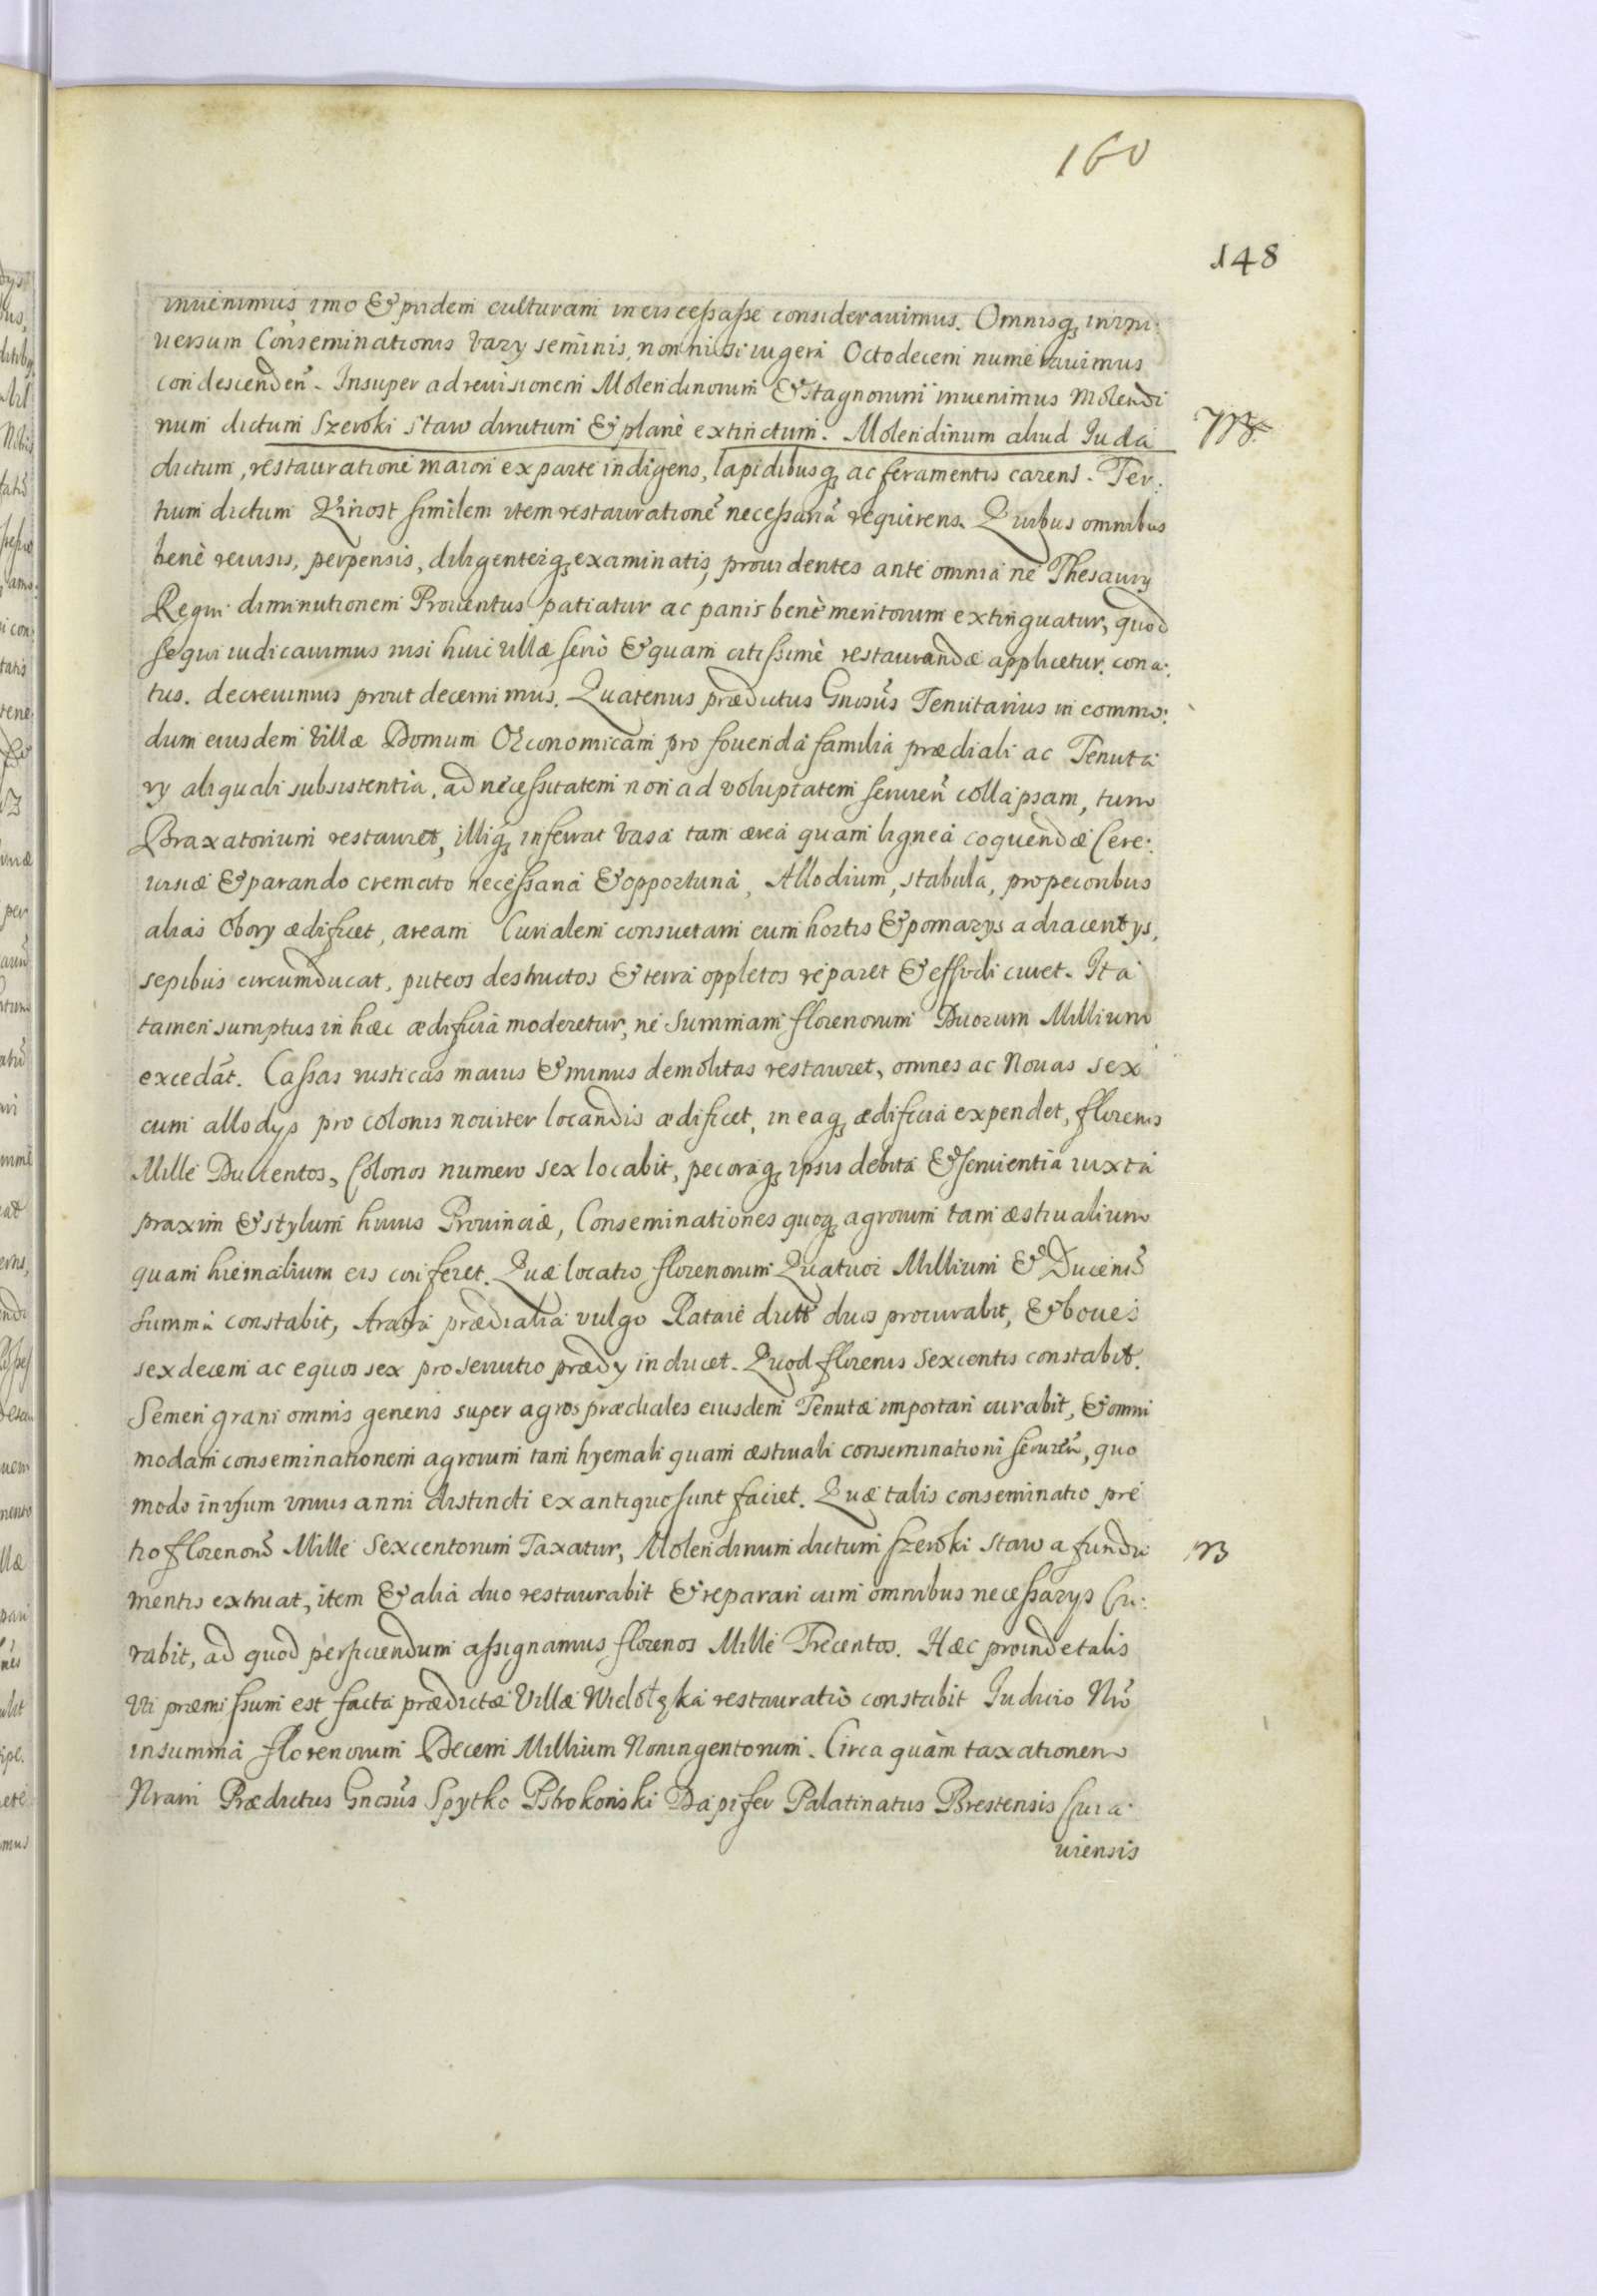 160
148
inuenimus imo & pridem culturam in eis cessasse consideravimus. Omnisq₃ in vni:
uersum Conseminationis vary seminis, non nisi iugera Octodecem numerauimus
condescendeñ. Insuper ad reuisionem Molendinorum & stagnorum inuenimus Molendi
num dictum Szeroki Staw dirutum & planè extinctum. Molendinum aliud Iuda
dictum, restauratione maiori ex parte indigens, lapidibusq₃ ac feramentis carens. Ter:
tium dictum similem item restaurationē necessariā requirens. Quibus omnibus
benè reuisis, perpensis, diligenterq₃ examinatis, prouidentes ante omnia ne Thesaury
Regni diminutionem Prouentus patiatur ac panis benè meritorum extinguatur, quod
sequi iudicauimus nisi huic villæ seriò & quam citissimè restaurandæ applicetur cona:
tus. decreuimus prout decernimus. Quatenus prædictus Gnosūs Tenutarius in commo:
dum eiusdem villæ Domum Œconomicam pro fouenda familia prædiali ac Tenuta
ry aliquali subsistentia, ad necessitatem non ad voluptatem seruieñ collapsam, tum
Braxatorium restauret, illiq₃ inferat vasa tam ærea quam lignea coquendæ Cere:
uisiæ & parando cremato necessaria & opportuna, Allodium, stabula, pro pecoribus
alias Obory ædificet, aream Curialem consuetam cum hortis & pomarys adiacentys,
sepibus circumducat, puteos destructos & terra oppletos reparet & effodi curet. Ita
tamen sumptus in hæc ædificia moderetur, ne summam florenorum Duorum Millium
excedāt. Cassas rusticas maius & minus demolitas restauret, omnes ac Nouas sex
cum allodys pro colonis nouiter locandis ædificet, in eaq₃ ædificia expendet, florenos
Mille Ducentos, Colonos numero sex locabit, pecoraq₃ ipsis debita & seruientia iuxta
praxim & stylum huius Prouinciæ, Conseminationes quoq₃ agrorum tam æstiualium
quam hiemalium eis conferet. Quæ locatio florenorum Quatuor Millium & Ducenos
summa constabit, Aratra prædialia vulgo Rataie dict duo procurabit, & boues
sexdecem ac equos sex pro seruitio prædy inducet. Quod florenis sexcentis constabit.
Semen grani omnis generis super agros prædiales eiusdem Tenutæ importari curabit, & omni
modam conseminationem agrorum tam hyemali quam æstiuali conseminationi seruieñ, quo
modo in vsum vnius anni distincti ex antiquo sunt faciet. Quæ talis conseminatio pre
tio florenorū Mille Sexcentorum Taxatur, Molendinum dictum Szeroki Staw a funda
mentis extruat, item & alia duo restaurabit & reparari cum omnibus necessarys Cu:
rabit, ad quod perficiendum assignamus florenos Mille Trecentos. Hæc proinde talis
vti præmissum est facta prædictæ Villæ Wielołęka restauratio constabit Iudicio Nrō
in summa florenorum Decem Millium Noningentorum. Circa quàm taxationem
Nram Prædictus Gnosūs Spytko Pstrokoński Dapifer Palatinatus Brestensis Cuia:
uiensis